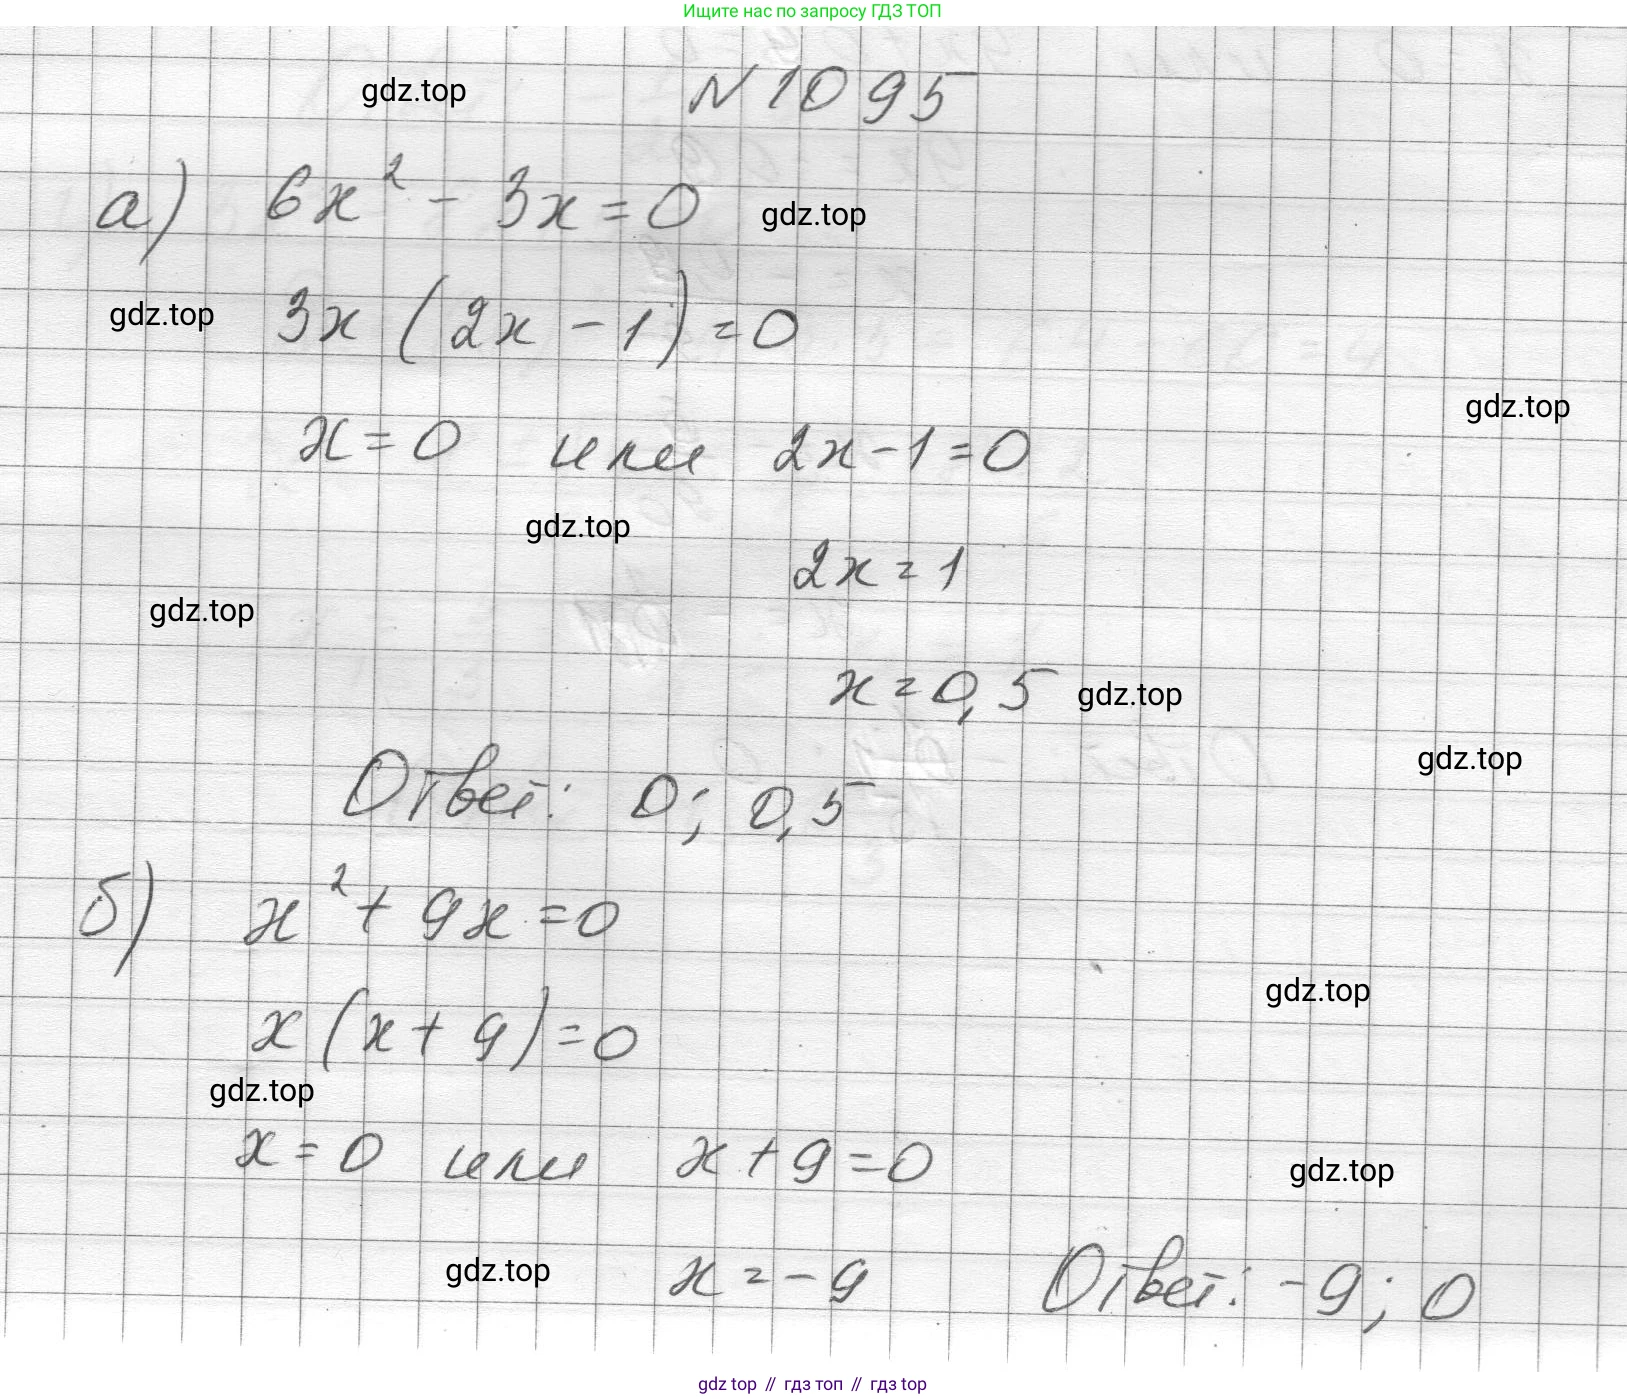 Ищите нас по запросу ГДЗ ТОП
gdz.top
№ 1095
а) 6x² - 3x = 0
gdz.top
gdz.top
3x (2x - 1) = 0
gdz.top
x = 0 или 2x - 1 = 0
gdz.top
2x = 1
gdz.top
x = 0,5
gdz.top
gdz.top
Ответ: 0; 0,5
б) x² + 9x = 0
gdz.top
x (x + 9) = 0
gdz.top
x = 0 или x + 9 = 0
gdz.top
gdz.top
x = -9 Ответ: -9; 0
gdz top // гдз топ // гдз top